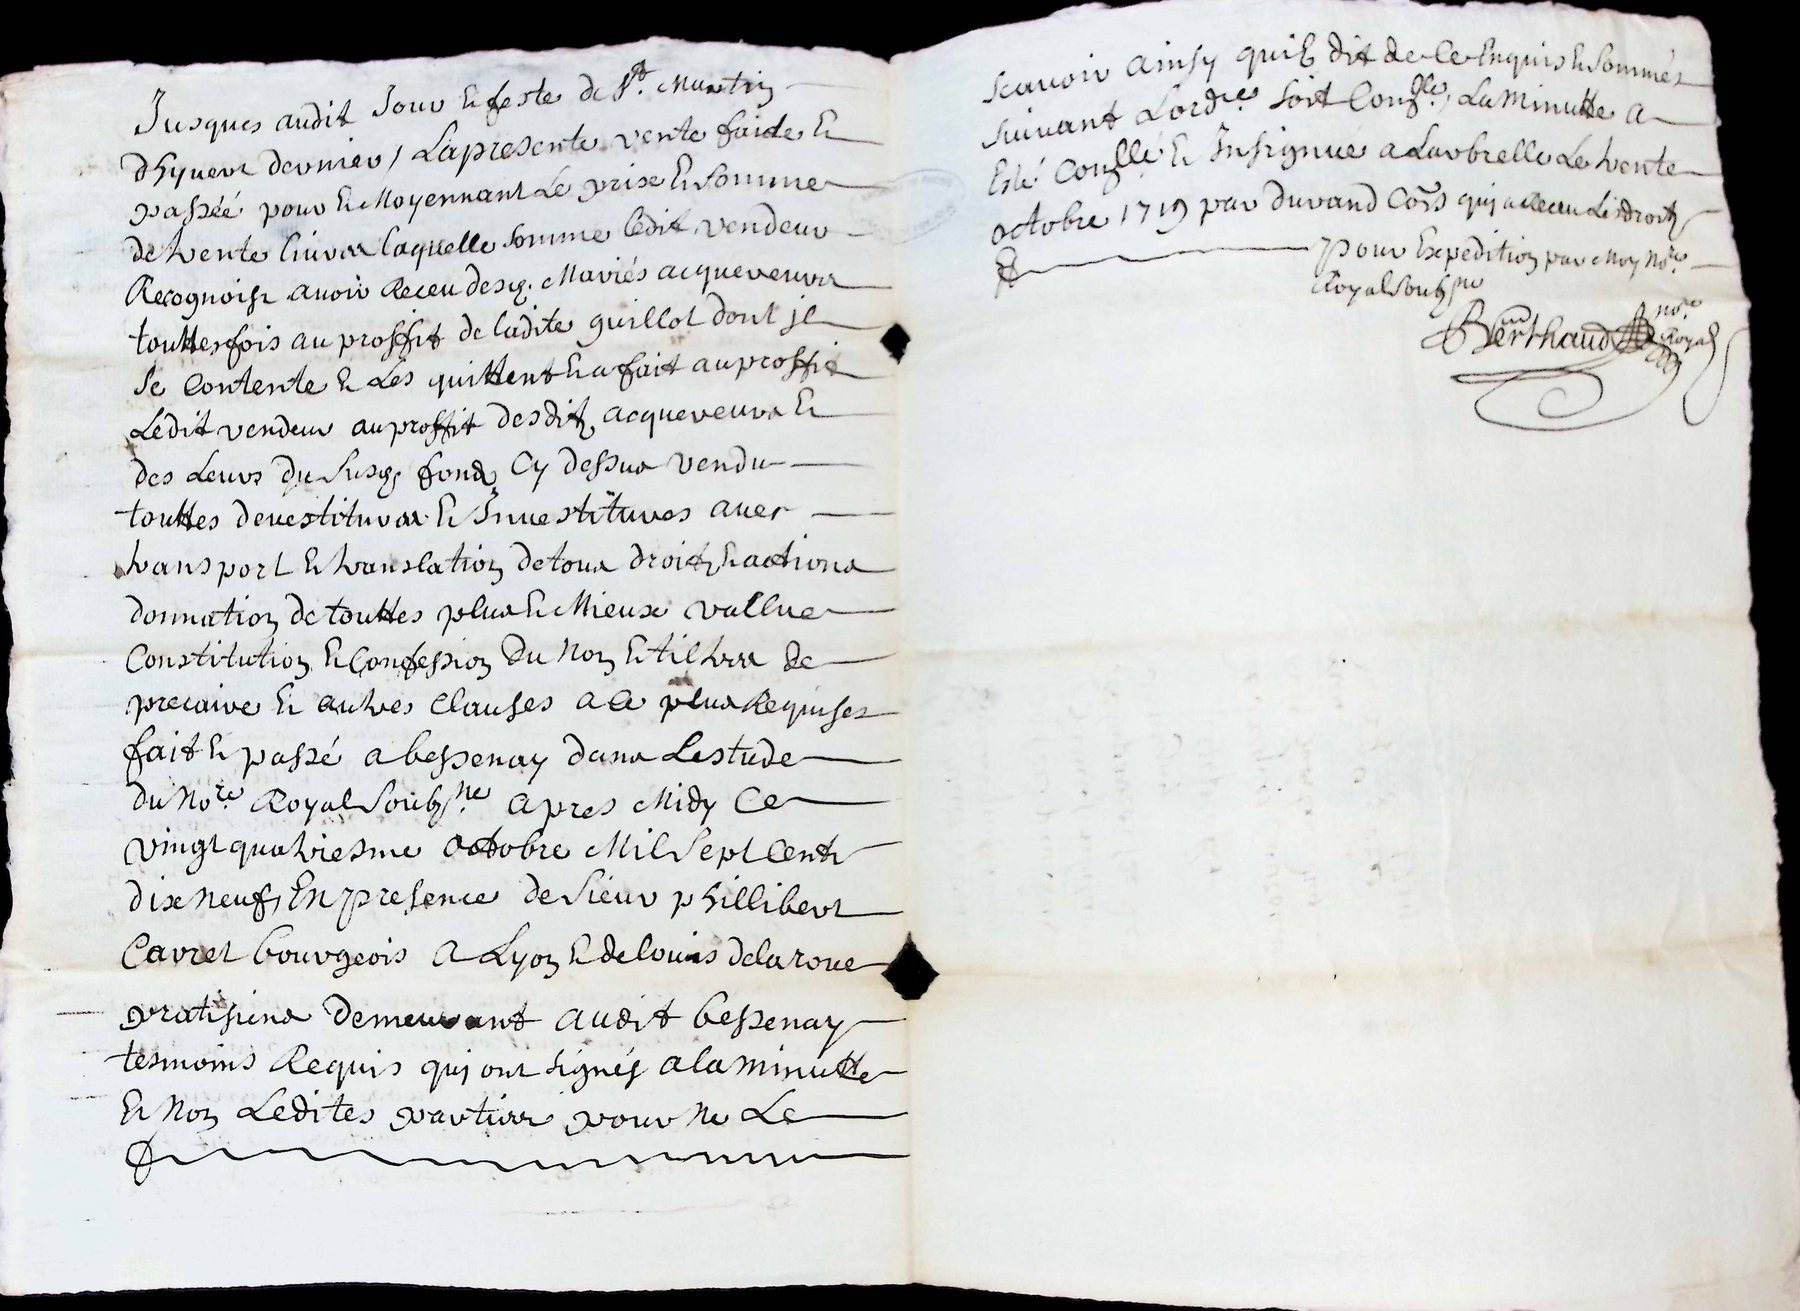 Jusques audit Jour & feste de St. Martin
dhyvert dernier, La presente vente faicte &
passée pour & Moyennant Le prix & Somme
de trente Livres laquelle somme ledit vendeur
Recognoist avoir Receu desd. Mariés acquereurs
touttesfois au proffit de ladite guillot dont jl
se Contente & Les quittent & a fait au proffit
Ledit vendeur au proffit desdits acquereurs &
des Leurs du Susd. fond Cy dessus vendu
touttes devestitures & Investitures avec
transport & translation de tous droits & actions
donnation de touttes plus & Mieux vallue
Constitution & Confession du Nom & tiltres de
precaire & autres Clauses a ce plus Requises
fait & passé a bessenay dans Lestude
du Nore. Royal Soubsne. apres Midy Ce
vingt quatriesme octobre Mil Sept Cents
dix neuf, En presence de Sieur phillibert
Carret bourgeois a Lyon & de louis delaroue
pratisiens demeurant audit bessenay
tesmoins Requis quj ont signés a la minutte
& Non Ledites parties pour ne Le
scavoir ainsy quil dit de ce Enquis & Sommés
suivant Lordce. soit Conllé. La Minutte a
Esté Conllé & Insignue a Larbrelle Le trente
octobre 1719 par durand Com̃s quj a Receu Les droits
pour Expedition par Moy Nore.
Royal Soubsne
Berthaud nore.
Royal